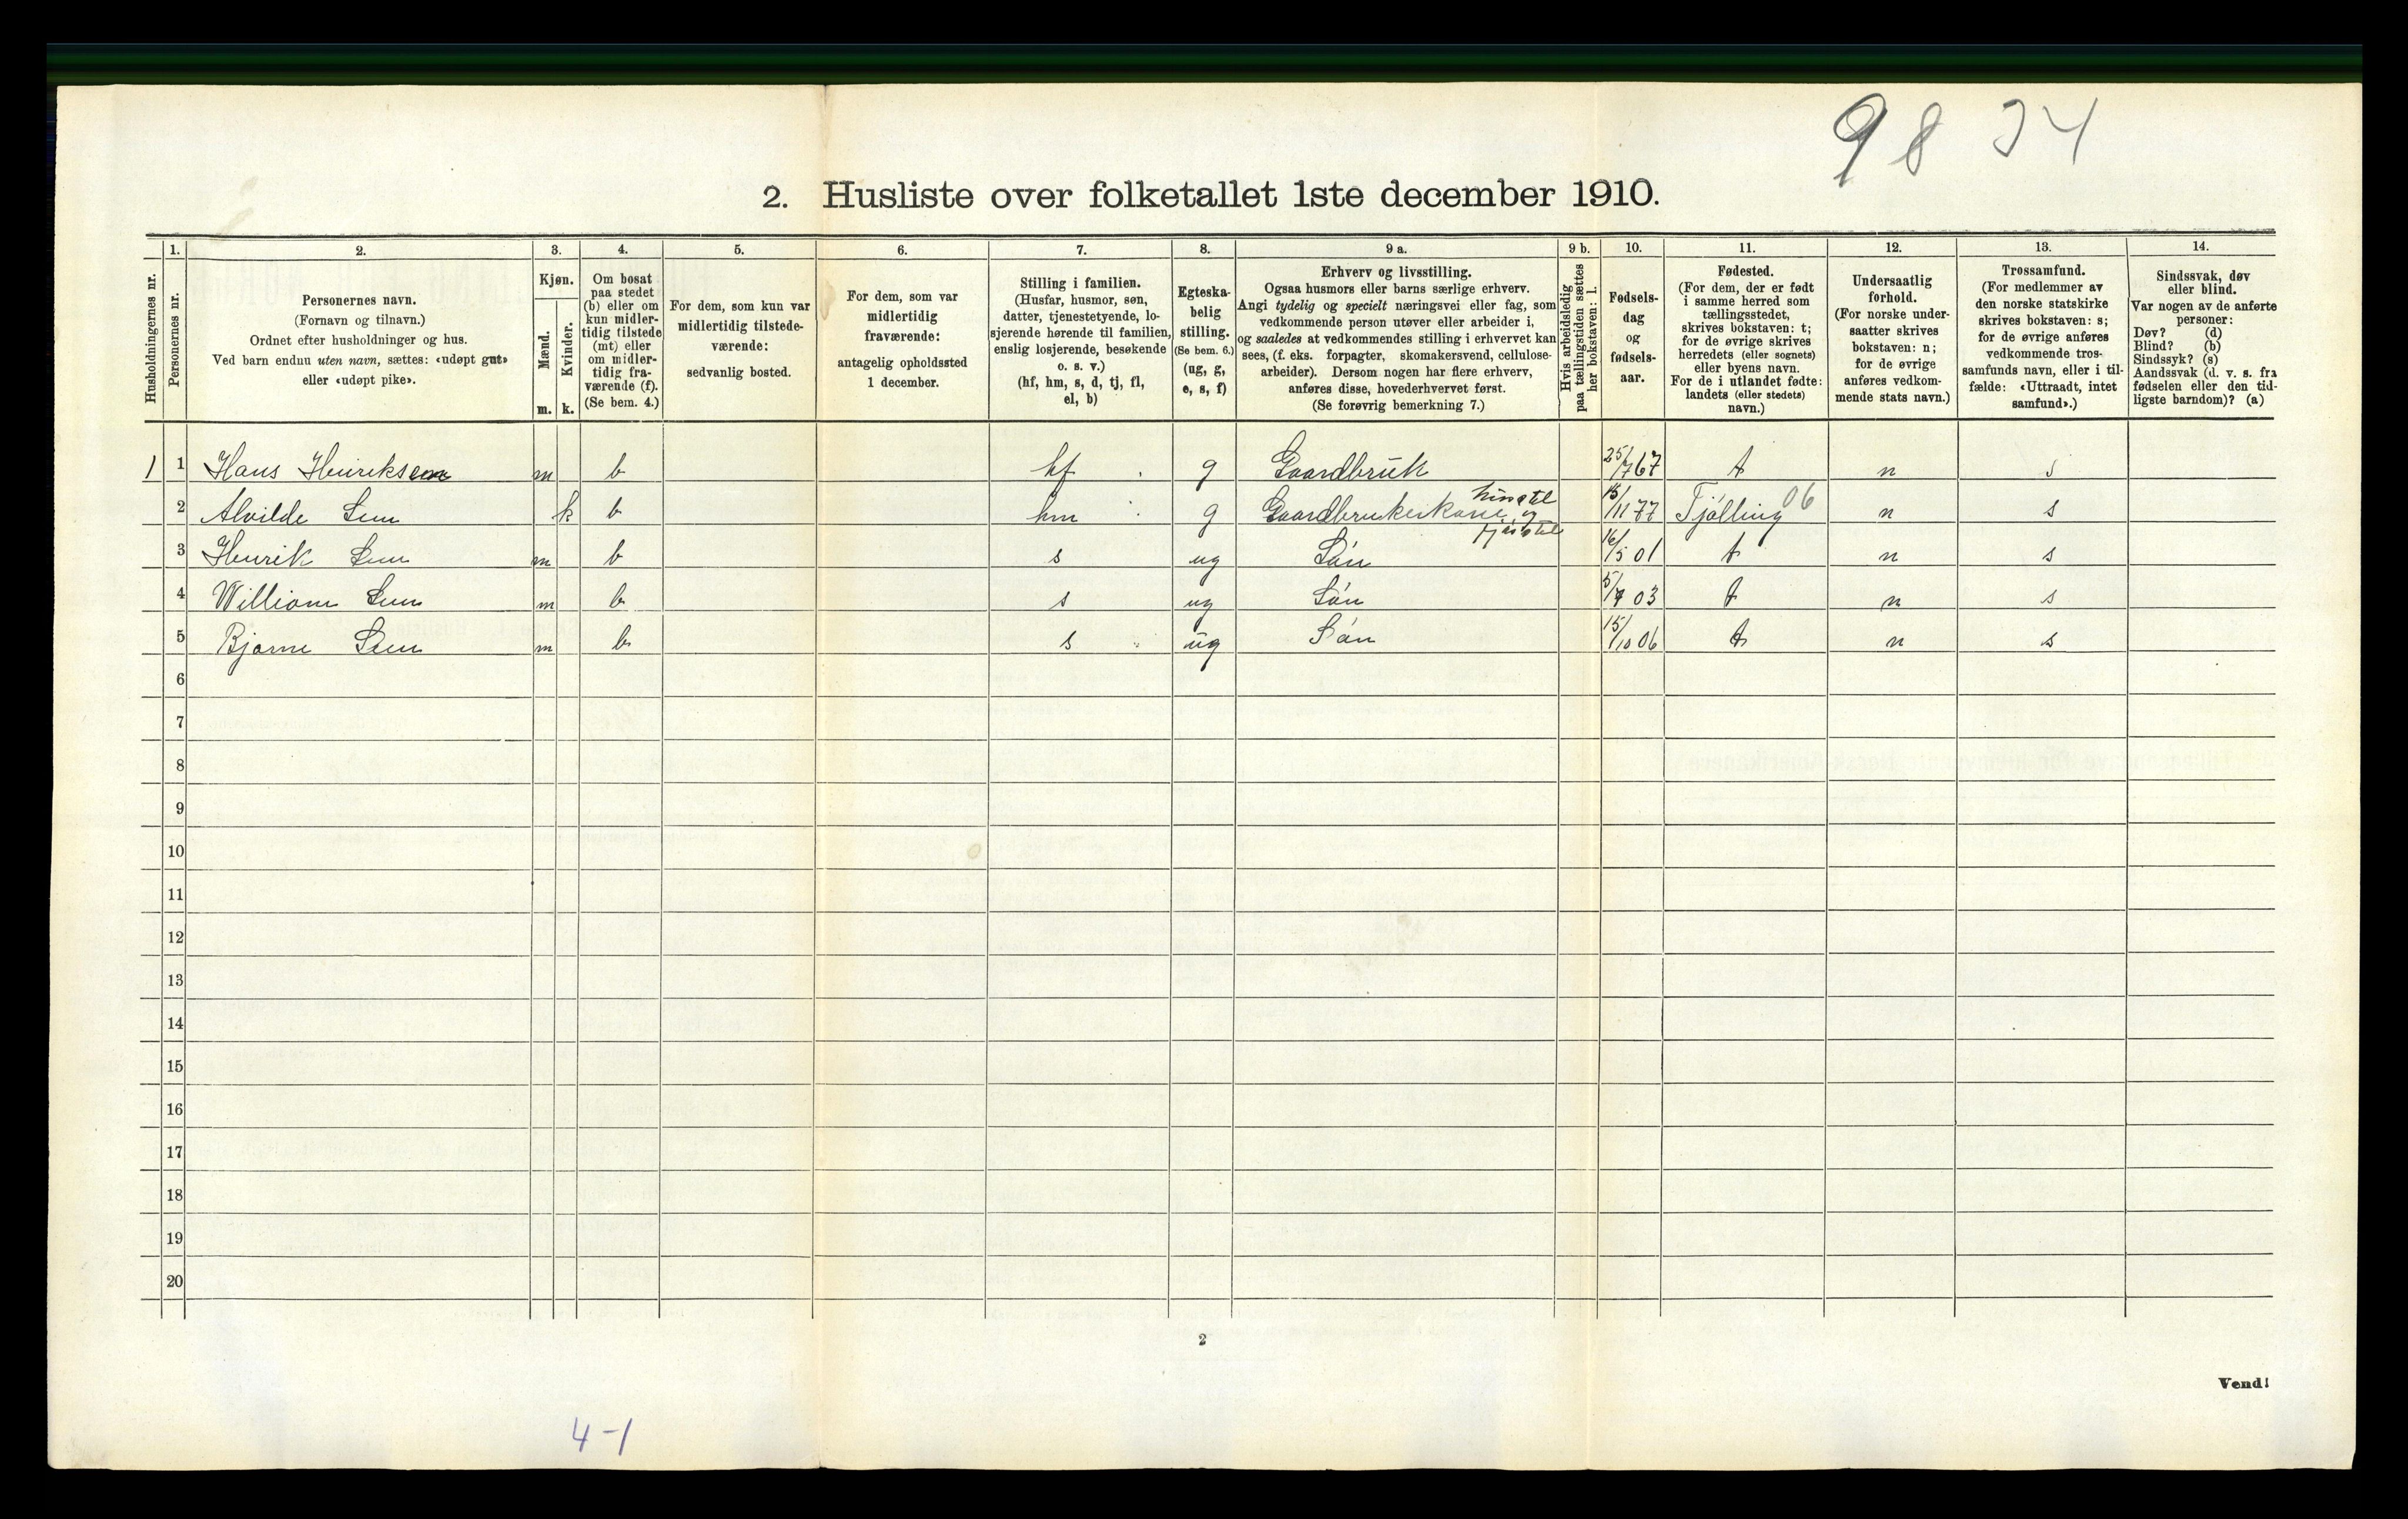 98 34
2. Husliste over folketallet 1ste december 1910.
Husholdningernes nr.
1. Personernes nr.
2. Personernes navn. (Fornavn og tilnavn.) Ordnet efter husholdninger og hus. Ved barn endnu uten navn, sættes: «udøpt gut» eller «udøpt pike».
3. Kjøn. Mænd. m. Kvinder. k.
4. Om bosat paa stedet (b) eller om kun midlertidig tilstede (mt) eller om midlertidig fraværende (f). (Se bem. 4.)
5. For dem, som kun var midlertidig tilstedeværende: sedvanlig bosted.
6. For dem, som var midlertidig fraværende: antagelig opholdssted 1 december.
7. Stilling i familien. (Husfar, husmor, søn, datter, tjenestetyende, losjerende hørende til familien, enslig losjerende, besøkende o. s. v.) (hf, hm, s, d, tj, fl, el, b)
8. Egteskabelig stilling. (Se bem. 6.) (ug, g, e, s, f)
9 a. Erhverv og livsstilling. Ogsaa husmors eller barns særlige erhverv. Angi tydelig og specielt næringsvei eller fag, som vedkommende person utøver eller arbeider i, og saaledes at vedkommendes stilling i erhvervet kan sees, (f. eks. forpagter, skomakersvend, cellulosearbeider). Dersom nogen har flere erhverv, anføres disse, hovederhvervet først. (Se forøvrig bemerkning 7.)
9 b. Hvis arbeidsledig paa tællingstiden sættes her bokstaven: l.
10. Fødselsdag og fødselsaar.
11. Fødested. (For dem, der er født i samme herred som tællingsstedet, skrives bokstaven: t; for de øvrige skrives herredets (eller sognets) eller byens navn. For de i utlandet fødte: landets (eller stedets) navn.)
12. Undersaatlig forhold. (For norske undersaatter skrives bokstaven: n; for de øvrige anføres vedkommende stats navn.)
13. Trossamfund. (For medlemmer av den norske statskirke skrives bokstaven: s; for de øvrige anføres vedkommende trossamfunds navn, eller i tilfælde: «Uttraadt, intet samfund».)
14. Sindssvak, døv eller blind. Var nogen av de anførte personer: Døv? (d) Blind? (b) Sindssyk? (s) Aandssvak (d. v. s. fra fødselen eller den tidligste barndom)? (a)
1 1 Hans Henriksen m b hf g Gaardbruk 25/7 67 t n s
2 Alvilde Sem k b hm g Gaardbrukerkone og 15/11 77 Tjølling 06 n s
3 Henrik Sem m b s ug Søn 16/5 01 t n s
4 William Sem m b s ug Søn 03 t n s
5 Bjarne Sem m b s ug Søn 15/10 06 t n s
6
7
8
9
10
11
12
13
14
15
16
17
18
19
20
2
Vend!
4-1